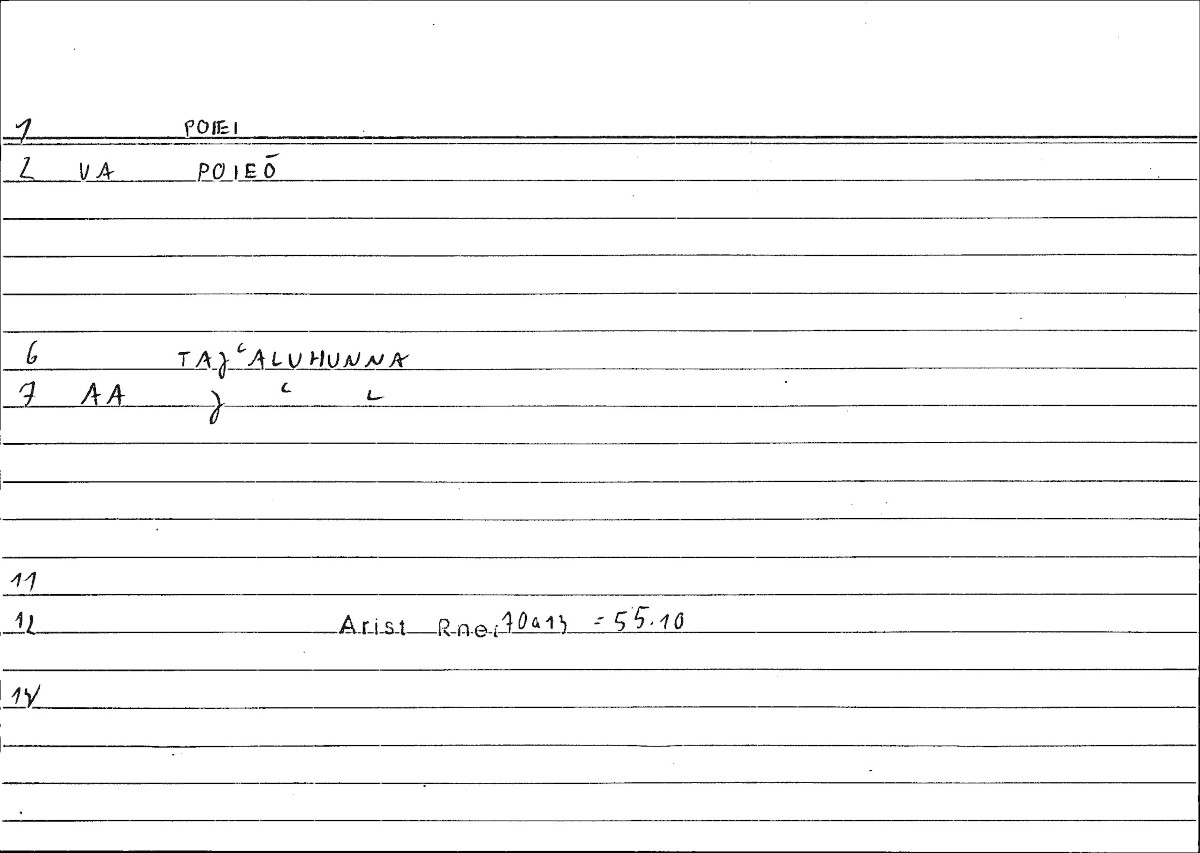 1 POIEI
2 VA POIEŌ
6 TAJʿALUHUNNA
7 AA J ʿ L
11
12 Arist Rhet 70a13 = 55.10
14